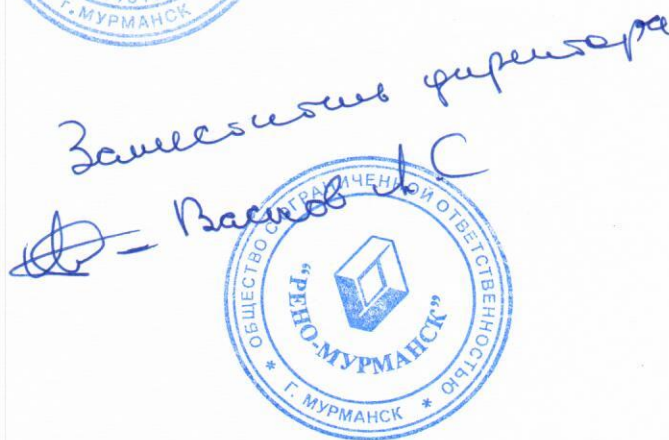 Г. МУРМАНСК
Заместитель директора
Васков А.С
ОБЩЕСТВО С ОГРАНИЧЕННОЙ ОТВЕТСТВЕННОСТЬЮ
"РЕНО-МУРМАНСК"
* Г. МУРМАНСК *